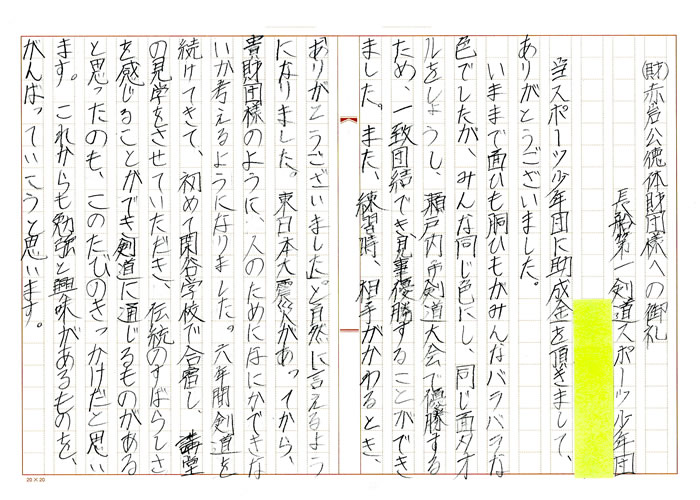 (財)赤岩公徳体財団様への御礼
長船第一剣道スポーツ少年団
当スポーツ少年団に助成金を頂きまして、
ありがとうございました。
いままで面ひも胴ひもがみんなバラバラな
色でしたが、みんな同じ色にし、同じ面タオ
ルをしようし、瀬戸内市剣道大会で優勝する
ため、一致団結でき見事優勝することができ
ました。また、練習時、相手がかわるとき、
ありがとうございました」と自然に言えるよう
になりました。東日本大震災があってから、
貴財団様のように、人のためになにかできな
いか考えるようになりました。六年間剣道を
続けてきて、初めて閑谷学校で合宿し、講堂
の見学をさせていただき、伝統のすばらしさ
を感じることができ剣道に通じるものがある
と思ったのも、このたびのきっかけだと思い
ます。これからも勉強と興味があるものを、
がんばっていこうと思います。
20×20